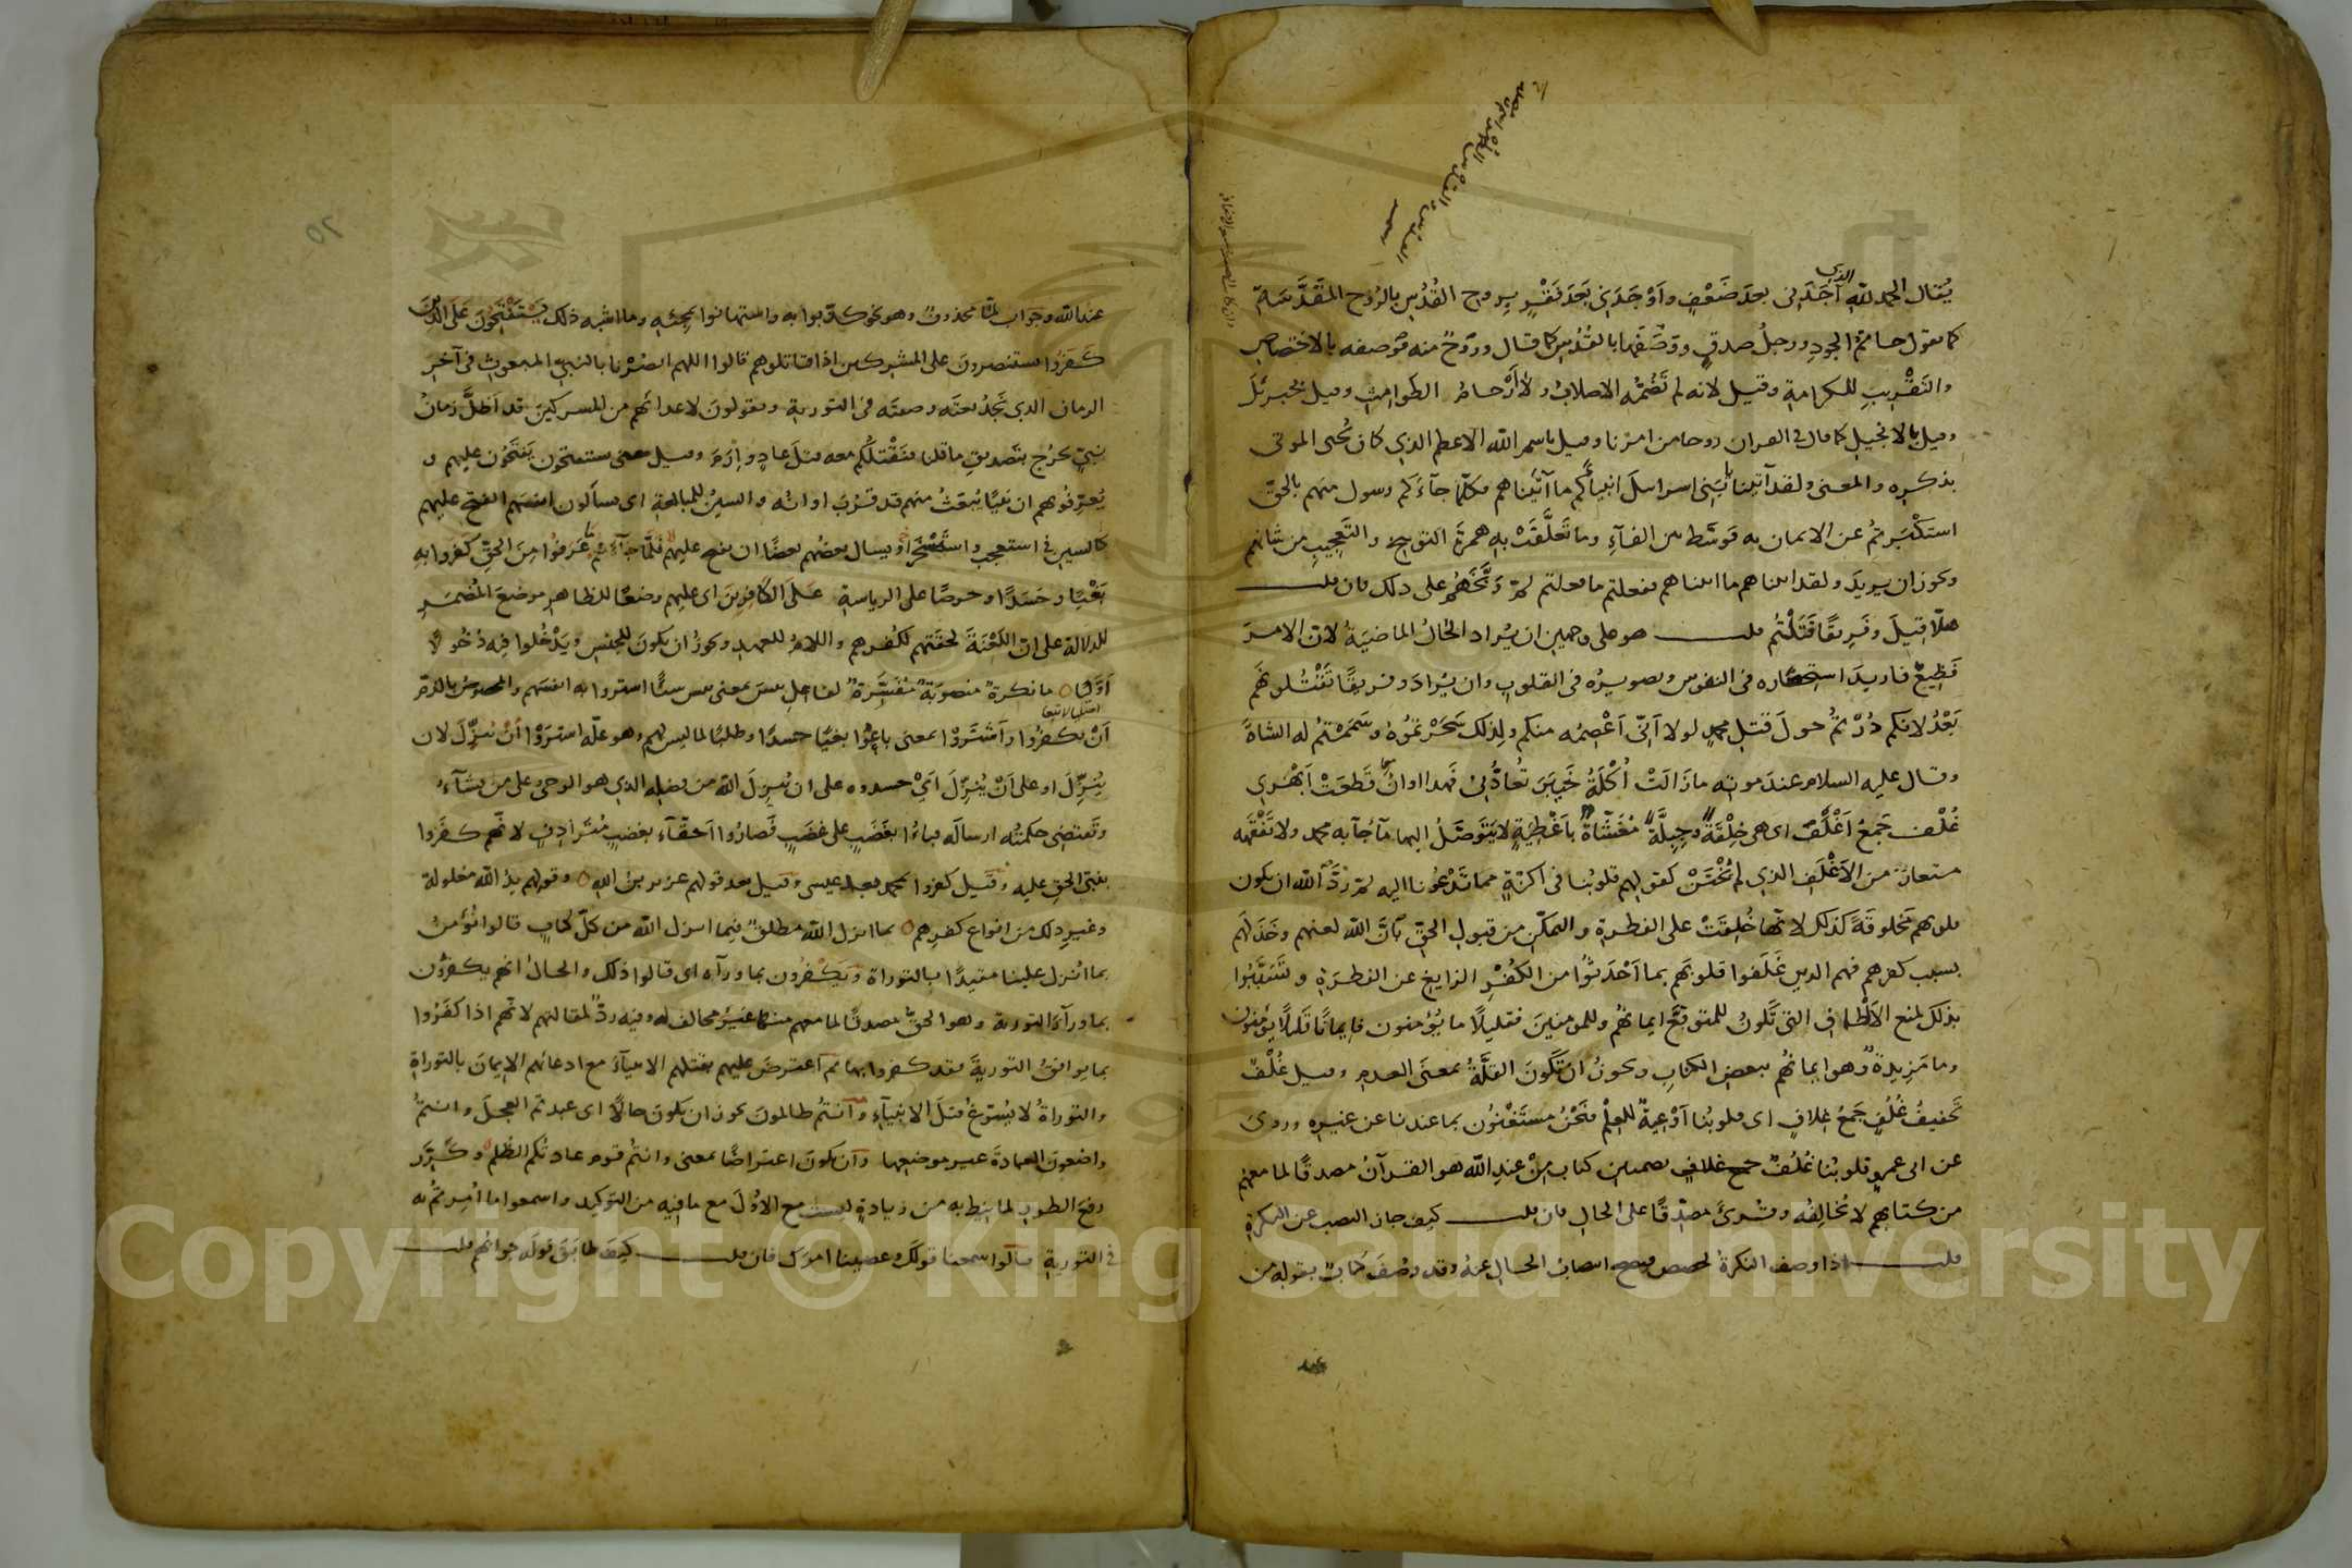 يُقال الحمد لله الذي آجَدَني بعدَ ضَعْفٍ وأَوْجَدَني بَعَدَ فَقْرٍ بِروح القُدُسِ بالرُوح المقَدَّسَةِ
كما تقول حاتمُ الجودِ ورجلُ صدقٍ ووَصَفَها بالقُدُس كما قال وروحٌ منه فوصفه بالاختصاص
والتَقْريبِ للكرامة وقيل لانه لم تَضُمّه الاصلابُ ولا أَرْحامُ الطوامث وقيل بجبرئل
وقيل بالانجيل كما قال في القران روحا من امرنا وقيل باسم الله الاعظم الذي كان يُحيى الموتى
بذكره والمعنى ولقد آتينا يا بَني اسرايلَ انبيآءَكُم ما آتَيْناهم فكلّما جآءَكم رسول منهم بالحقّ
استَكْبَرتُم عن الايمان به فوسّط بين الفآءِ وما تَعلَّقَتْ بِه همزةَ التوبيخ والتَعجيبِ من شانهم
ويجوز ان يريدَ ولقد اتيناهم ما اتيناهم ففعلتم ما فعلتم ثم وَبَّخَهُم على ذلك فان قلت
هلّا قيلَ وفَريقًا قَتَلْتُم قلت هو على وجهين ان يُراد الحَالُ الماضيَةُ لان الامرَ
فَظِيعٌ فاريدَ استحضاره في النفوس وتصويرُه في القلوب وان يُرادَ وفريقًا تَقْتُلونَهُم
بَعْدُ لانكم دُرْتُم حولَ قتلِ محمدٍ لولا أَنّى أَعْصِمُه منكم ولذلك سَحَرْتمُوهُ وسَمَمْتُم له الشاةَ
وقال عليه السلام عندَ موته ما زَالَتْ أُكْلَةُ خَيبَرَ تُعادُّنِى فَهذا اوانُ قَطعَتْ أَبْهَري
غُلْف جَمعُ أَغْلَفَ اى هي خِلْقَةً وجِبِلَّةً مُغَشّاةٌ بأَغْطِيَةٍ لا يَتَوَصَّلُ اليها ما جآ به محمد ولا تَفْقَهه
مستعارٌ من الأغْلَفِ الذي لم يُخْتَنْ كقولهم قلوبُنا في اكنّةٍ مما تَدْعُونا اليه ثم رَدَّ الله ان يكون
قلوبهم مَخلوقَةً كذلك لانّها خُلِقَتْ على الفطرة والتمكّنِ من قبولِ الحقِّ بأَنَّ الله لعنهم وخَذَلَهم
بسبب كفرهم فهم الذين غَلَفوا قلوبَهم بما أَحْدَثُوا من الكُفْرِ الزايغِ عن الفطرَةِ وتَسَبَّبُوا
بذلك لمنع الأَلْطافِ التى تكونُ للمتوقعِ ايمانُهُم وللمومنينَ فقليلًا ما يُؤمنون فايمانًا قليلًا يؤمنون
وما مَزِيدةٌ وهو ايمانُهُم ببعض الكتابِ ويجوزُ ان تَكونَ القلَّةُ بمعنَى العدمِ وقيل غُلْفٌ
تخفيفُ غُلُفٍ جَمعُ غِلافٍ اى قلوبُنا أَوْعيةٌ للعِلْمِ فنَحْنُ مستَغْنُون بما عندنا عن غيره وروىَ
عن ابى عمرٍو قلوبُنا غُلُفٌ جمع غلافٍ بضمتين كتاب مِنْ عندِ الله هو القرآنُ مصدقًا لما معهم
من كتابهم لا تُخالِفُه وقُرئَ مصدّقًا على الحالِ فان قلت كيف جاز النصب عن النكرةِ
قلت اذا وصف النكرةُ تخصص فيصح انتصابُ الحال عنهُ وقد وصْفَ كتابٌ بقوله من
عند
عند الله وجواب لمّا محذوفٌ وهو نحو كذّبوا به واستهانوا بمجئِه وما اشبه ذلك يَسْتَفْتِحُونَ عَلَى الَّذينَ
كَفَرُوا يستنصرونَ على المشركين اذا قاتلوهم قالوا اللهم انصُرْنا بالنبيّ المبعوثِ في آخرِ
الزمان الذي نَجِدُ نعتَه وصفتَه في التورية ويقولونَ لاعدائهم من المشركينَ قد أظلَّ زمانُ
نبيّ يخرُج بتَصديقِ ما قلنا فنَقْتلُكُم معه قتلَ عادٍ وإرَمَ وقيل معنى يستفتحون يَفتَحُون عليهم و
يُعرِّفُونهم ان نَبيًّا يُبعَثُ منهم قد قَرُبَ اوانُه والسينُ للمبالغةِ اى يسألون انفسَهم الفتح عليهم
كالسين في استعجب واستَسْخَرَ أو يسال بعضُهم بعضًا ان يفتح عليهم فلَمّا جَآءَهُمْ ما عَرَفُوا مِنَ الحَقِّ كَفروا بهِ
بَغْيًا وحَسَدًا وحرصًا على الرياسةِ عَلَى الكافِرِينَ اى عليهم وضعًا للظاهرِ موضعَ المُضمَرِ
للدلالة على انّ اللَعْنَةَ لحقَتهم لكُفرهم واللامُ للعهدِ ويجوزُ ان يكونَ للجنسِ ويَدْخُلوا فيه دُخُولًا
أَوَّليًّا ما نكرةٌ منصوبَةٌ مُفَسِّرةٌ لفاعلِ بئسَ بمعنى بئس شيئًا اشتروا به انفسَهم والمخصوصُ بالذمّ
أَنْ يكفرُوا واَشْتَرَوْا بمعنى باعُوا بغيًا حسدًا وطلبًا لما ليس لهم وهو علّة اشترَوْا أنْ يُنزِّلَ لان
يُنزِّلَ او على أَنْ يُنزّلَ أَىْ حسدوه على ان يُنزِلَ الله من فضلِه الذي هو الوحي على من يشآءُ
وتَقتضى حكمتُه ارسالَه فباءُا بغَضَبٍ على غضَبٍ فَصارُوا أحقّآءَ بغضبٍ مُتَرادِفٍ لانّهم كفَروا
بنبيّ الحقِ عليه وقيل كفروا بمحمد بعد عيسى وقيل بعد قولهم عزير بن الله وقولهم يدُ الله مغلولة
وغيرِ ذلك من انواع كفرِهم بما انزل الله مطلقٌ فيما انزل الله من كلّ كتابٍ قالوا نُؤمنُ
بما انْزل علينا مقيدًا بالتوراةِ ويَكْفرُون بما ورآه اى قالوا ذلك والحالُ انهم يكفرُون
بما ورآءَ التورية وهو الحقُّ مصدقًا لما معهم منها غيرُ مخالف له وفيه ردٌّ لمقالتهم لانّهم اذا كفَرُوا
بما يوافقُ التوريةَ فقد كفروا بها ثم اعترضَ عليهم بقتلِهم الانبيآءَ مع ادعائهم الايمانَ بالتوراةِ
والتوراةُ لا يُسَوّغُ قتلَ الانبيآءِ وأنتُم ظالمونَ يجوز ان يكونَ حالًا اى عبدتم العجلَ وانتمْ
واضعون العبادةَ غير موضعِها وأن يكونَ اعتراضًا بمعنى وانتمْ قوم عادتُكم الظُلم وكُرِّر
رفعَ الطورِ لما نيط به من زيادةٍ ليست مع الاوّلَ مع ما فيه من التوكيد واسمعوا ما اُمِرتُم به
في التورية قالوا سمعنا قولَكَ وعصينا امرَك فان قلت كيفَ طابَقَ قولَه جوابُهُم قلت